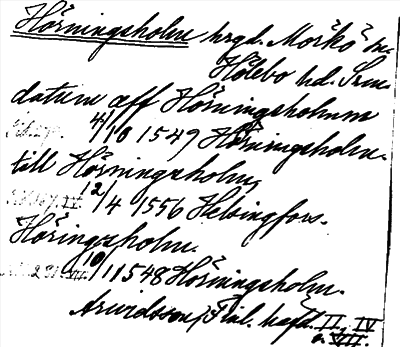 Hörningsholm hrgd. Mörkö sn.
Hölebo hd. Srm.
datum aff Hörningsholmm
4/10 1549 Hörningsholm.
till Hörningsholm
12/4 1556 Helsingfors.
Höringxholm.
10/11 1548 Hörningsholm.
Arwidsson, Finl. häfd. II, IV
o. VII.